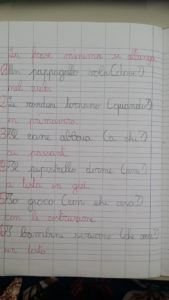 La frase minima si allunga
1) Un pappagallo vola (dove?)
nel
2) Le rondini tornano (quando?)
in primavera
3) Il cane abbaia (a chi?)
ai passanti
4) Il pipistrello dorme (come?)
a testa in giù.
5) Io gioco (con che cosa?)
con le costruzioni
6) I bambini scrivono (che cosa?)
un testo